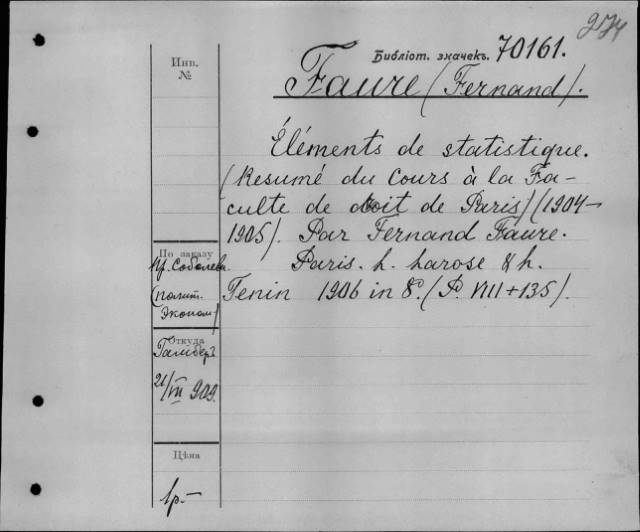 274
Библіот. значекъ. 70161.
Инв.
№
Faure (Fernand).
Éléments de statistique.
(Resumé du Cours à la Fa-
culte de dtoit de Paris) (1904-
1905). Par Fernand Faure.
Paris. h. Larose & h.
Tenin 1906 in 8°. (P. VIII + 135).
По заказу
пр. Соболева
(полит.
Эконом.)
Откуда
Гамбер
21/VII 909.
Цѣна
1р.-